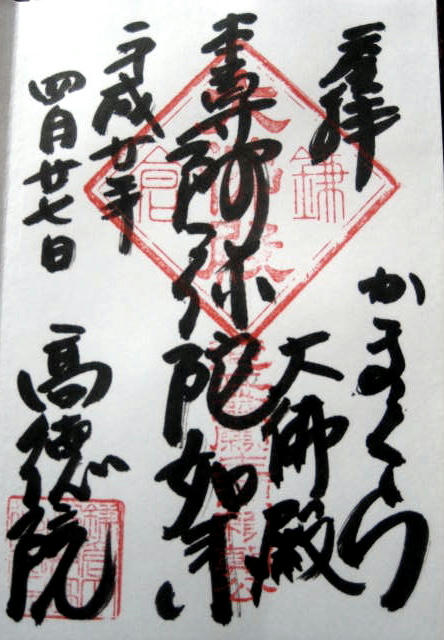 奉拝
かまくら
大佛殿
本尊阿弥陀如来
平成廿年
四月廿七日
高徳院
鎌
大佛殿
倉